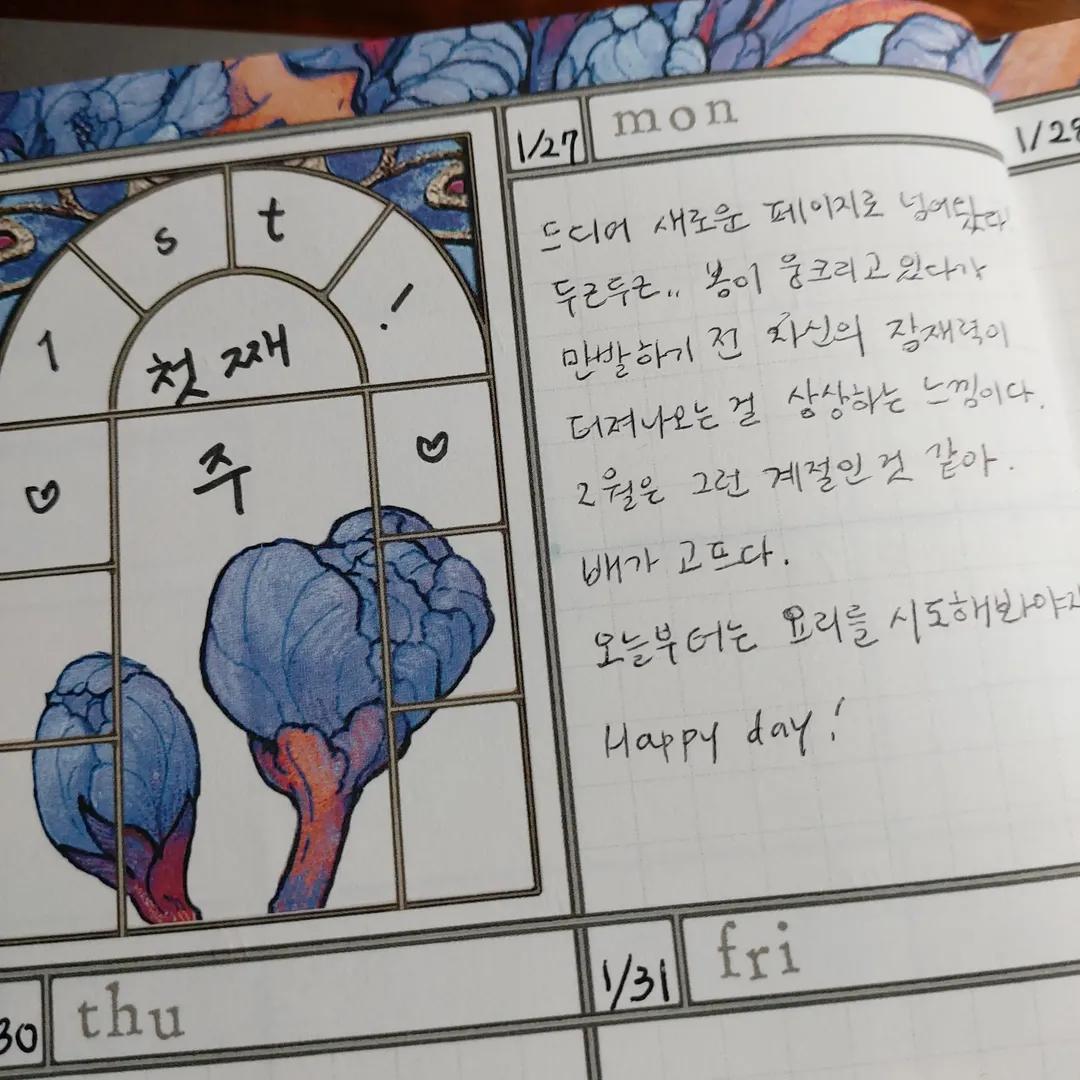 1 s t !
첫째
♡ 주 ♡
1/27 mon
드디어 새로운 페이지로 넘어왔다!
두근두근.. 봄이 웅크리고 있다가
만발하기 전 자신의 잠재력이
터져나오는 걸 상상하는 느낌이다.
2월은 그런 계절인 것 같아.
배가 고프다.
오늘부터는 요리를 시도해봐야지
Happy day!
1/28
30 thu
1/31 fri